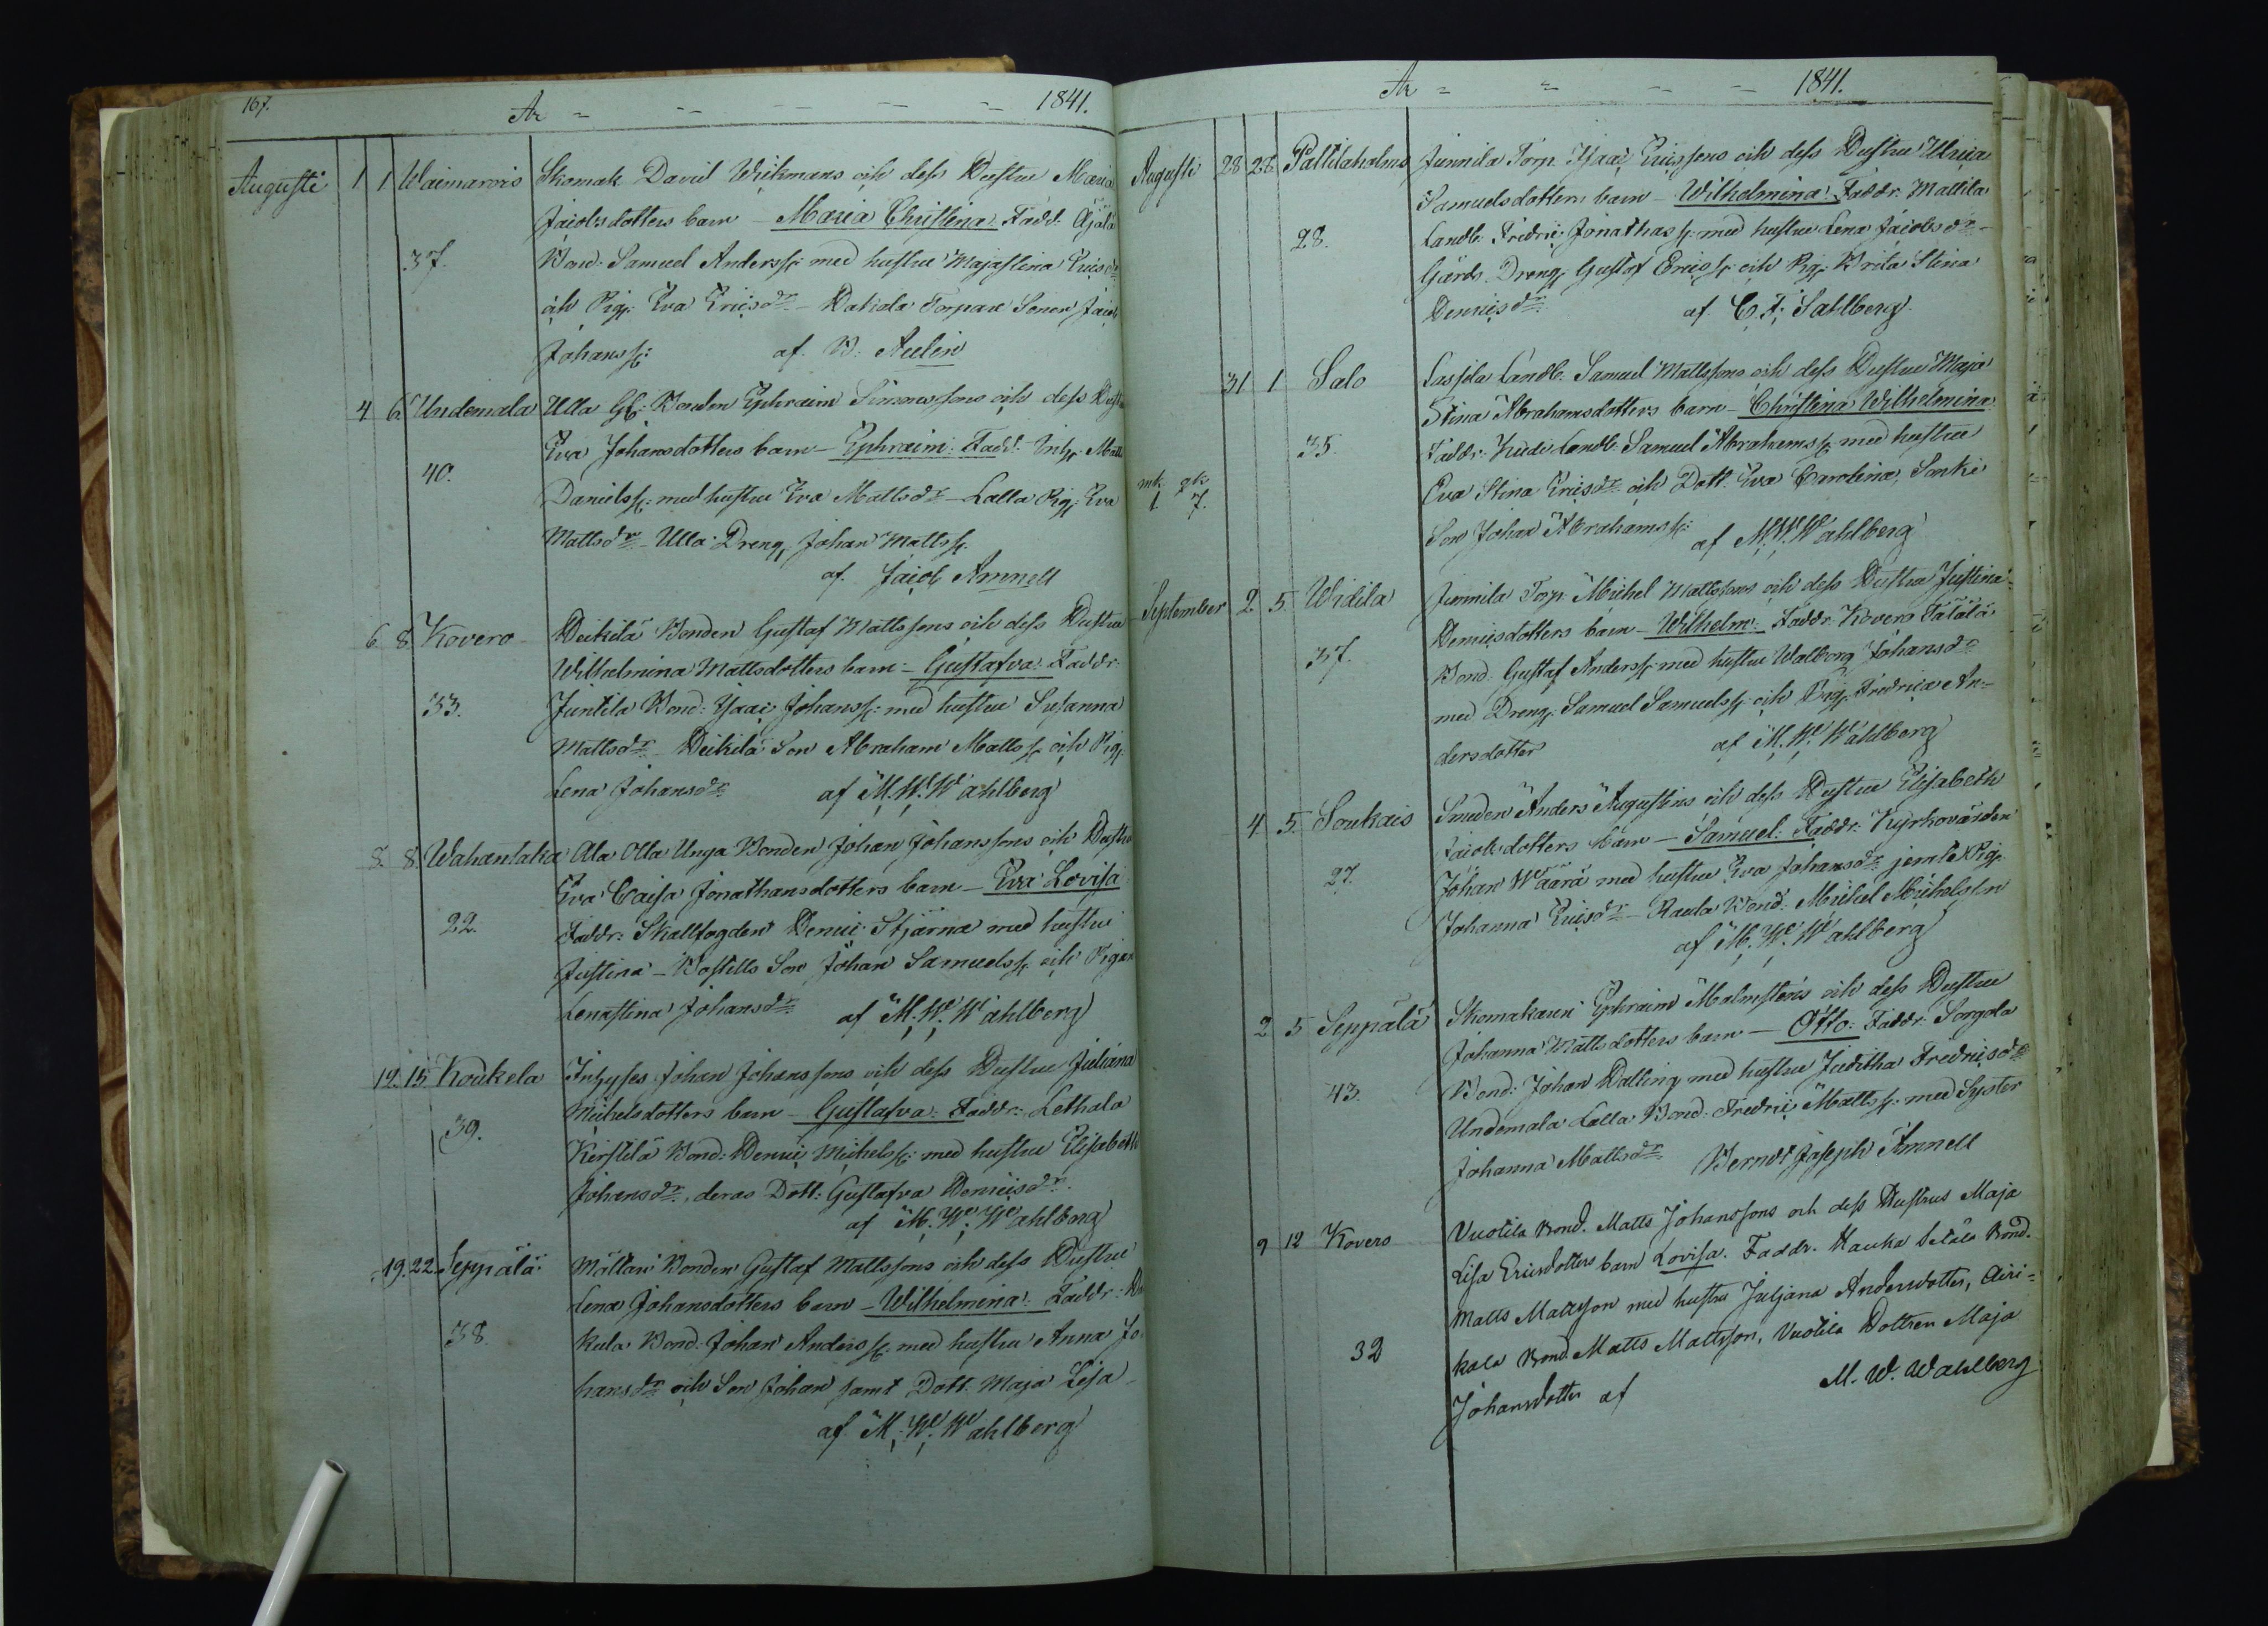 167.
År - - - - - - 1841.
Augusti 1 1 Waimarois Skomak. David Wickmans och dess Hustru Maria
Jacobsdotters barn - Maria Christina. Fadd: Äjälä
37. Bond: Samuel Anderss: med hustru Majastina Ericsdr
och Pig. Eva Ericsdr - Torpare Sonen Jacob
Johanss: af B. Aelin
4 6 Undemala Ulla Gl. Bonden Ephraim Simonssons och dess Hustru
Eva Johansdotters barn - Ephraim: Fadd: Inhs. Matts
40. Danielss: med hustru Eva Mattsdr - Lalla Pig. Eva
Mattsdr - Ulla Dreng. Johan Mattss.
af. Jacob Amnell
6 8 Kovero Heikilä Bonden Gustaf Mattssons och dess Hustru
Wilhelmina Mattsdotters barn - Gustafva: Faddr:
33. Juntila Bond: Isaac Johanss: med hustru Susanna
Mattsdr - Heikilä Son Abraham Mattss. och Pig.
Lena Johansdr af M. W. Wahlberg
8. 8. Wahantaka Ala Olla Unga Bonden Johan Johanssons och Hustru
Eva Caisa Jonathansdotters barn - Eva Lovisa
22. Faddr: Skallfogden Henric Stjärna med hustru
Justina - Bostells Son Johan Samuelss. och Pigan
Lenastina Johansdr af M. W. Wahlberg
12. 15 Koukela Inhyses Johan Johanssons och dess Hustru Juliana
Michelsdotters barn - Gustafva: Faddr: Lethala
39. Kirstilä Bond: Henric Michelss: med hustru Elisabeth
Johansdr, deras Dott: Gustafva Henricsdr
af M. W. Wahlberg
19. 22. Seppälä Mältäri Bonden Gustaf Mattssons och dess Hustru
Lena Johansdotters barn - Wilhelmina: Faddr:
38. kula Bond. Johan Anderss: med hustru Anna Jo-
hansdr och Son Johan samt Dott. Maja Lisa
af M. W. Wahlberg
År - - - - 1841.
Augusti 28 28 Paltilaholms Junnila Torp. Isaac Ericssons och dess Hustru Ulrica
Samuelsdotters barn - Wilhelmina: Faddr. Mattila
28. Landb. Fredric Jonathass: med hustru Lena Jacobsdr -
Gårds Dreng. Gustaf Ericss. och Pig. Brita Stina
Henricsdr. af C. F. Sahlberg
31 1 Salo Lassila Landb. Samuel Mattssons och dess Hustru Maja
Stina Abrahamsdotters barn - Christina Wilhelmina
35. Faddr: Landb. Samuel Abrahamss: med hustru
Eva Stina Ericsdr och Dott. Eva Carolina, Sarki
Son Johan Abrahamss:
af M. W. Wahlberg
September 2 5 Widila Junnila Torp. Michel Mattssons och dess Hustru Justina
Henricsdotters barn - Wilhelm: Faddr. Kovero Tätälä
37. Bond. Gustaf Anderss: med hustru Walborg Johansdr
med Dreng. Samuel Samuelss. och Pig. Fredrica An-
dersdotter af M. W. Wahlberg
4 5 Soukais Smeden Anders Augustins och dess Hustru Elisabeth
Jacobsdotters barn - Samuel: Faddr: Kyrkovärden
27. Johan Wäärä med hustru Eva Johansdr jemte Pig.
Johanna Ericsdr - Raula Bond: Michel Michelsson
af M. W. Wahlberg
2 5 Seppälä Skomakaren Ephraim Malmsténs och dess Hustru
Johanna Mattsdotters barn - Otto: Faddr. Sorgola
43. Bond: Johan Dalling med hustru Juditha Fredricsdr
Undemala Lalla Bond: Fredric Mattss: med Syster
Johanna Mattsdr. Berndt Joseph Amnell
9 12 Kovero Vuotila Bond. Matts Johanssons och dess Hustrus Maja
Lisa Ericsdotters barn Lovisa. Faddr. Hauka Setälä Bond.
Matts Mattsson med hustru Juljana Andersdotter, Airi-
32 kala Bond. Matts Mattsson, Vuotila Dottren Maja
Johansdotter af M. W. Wahlberg